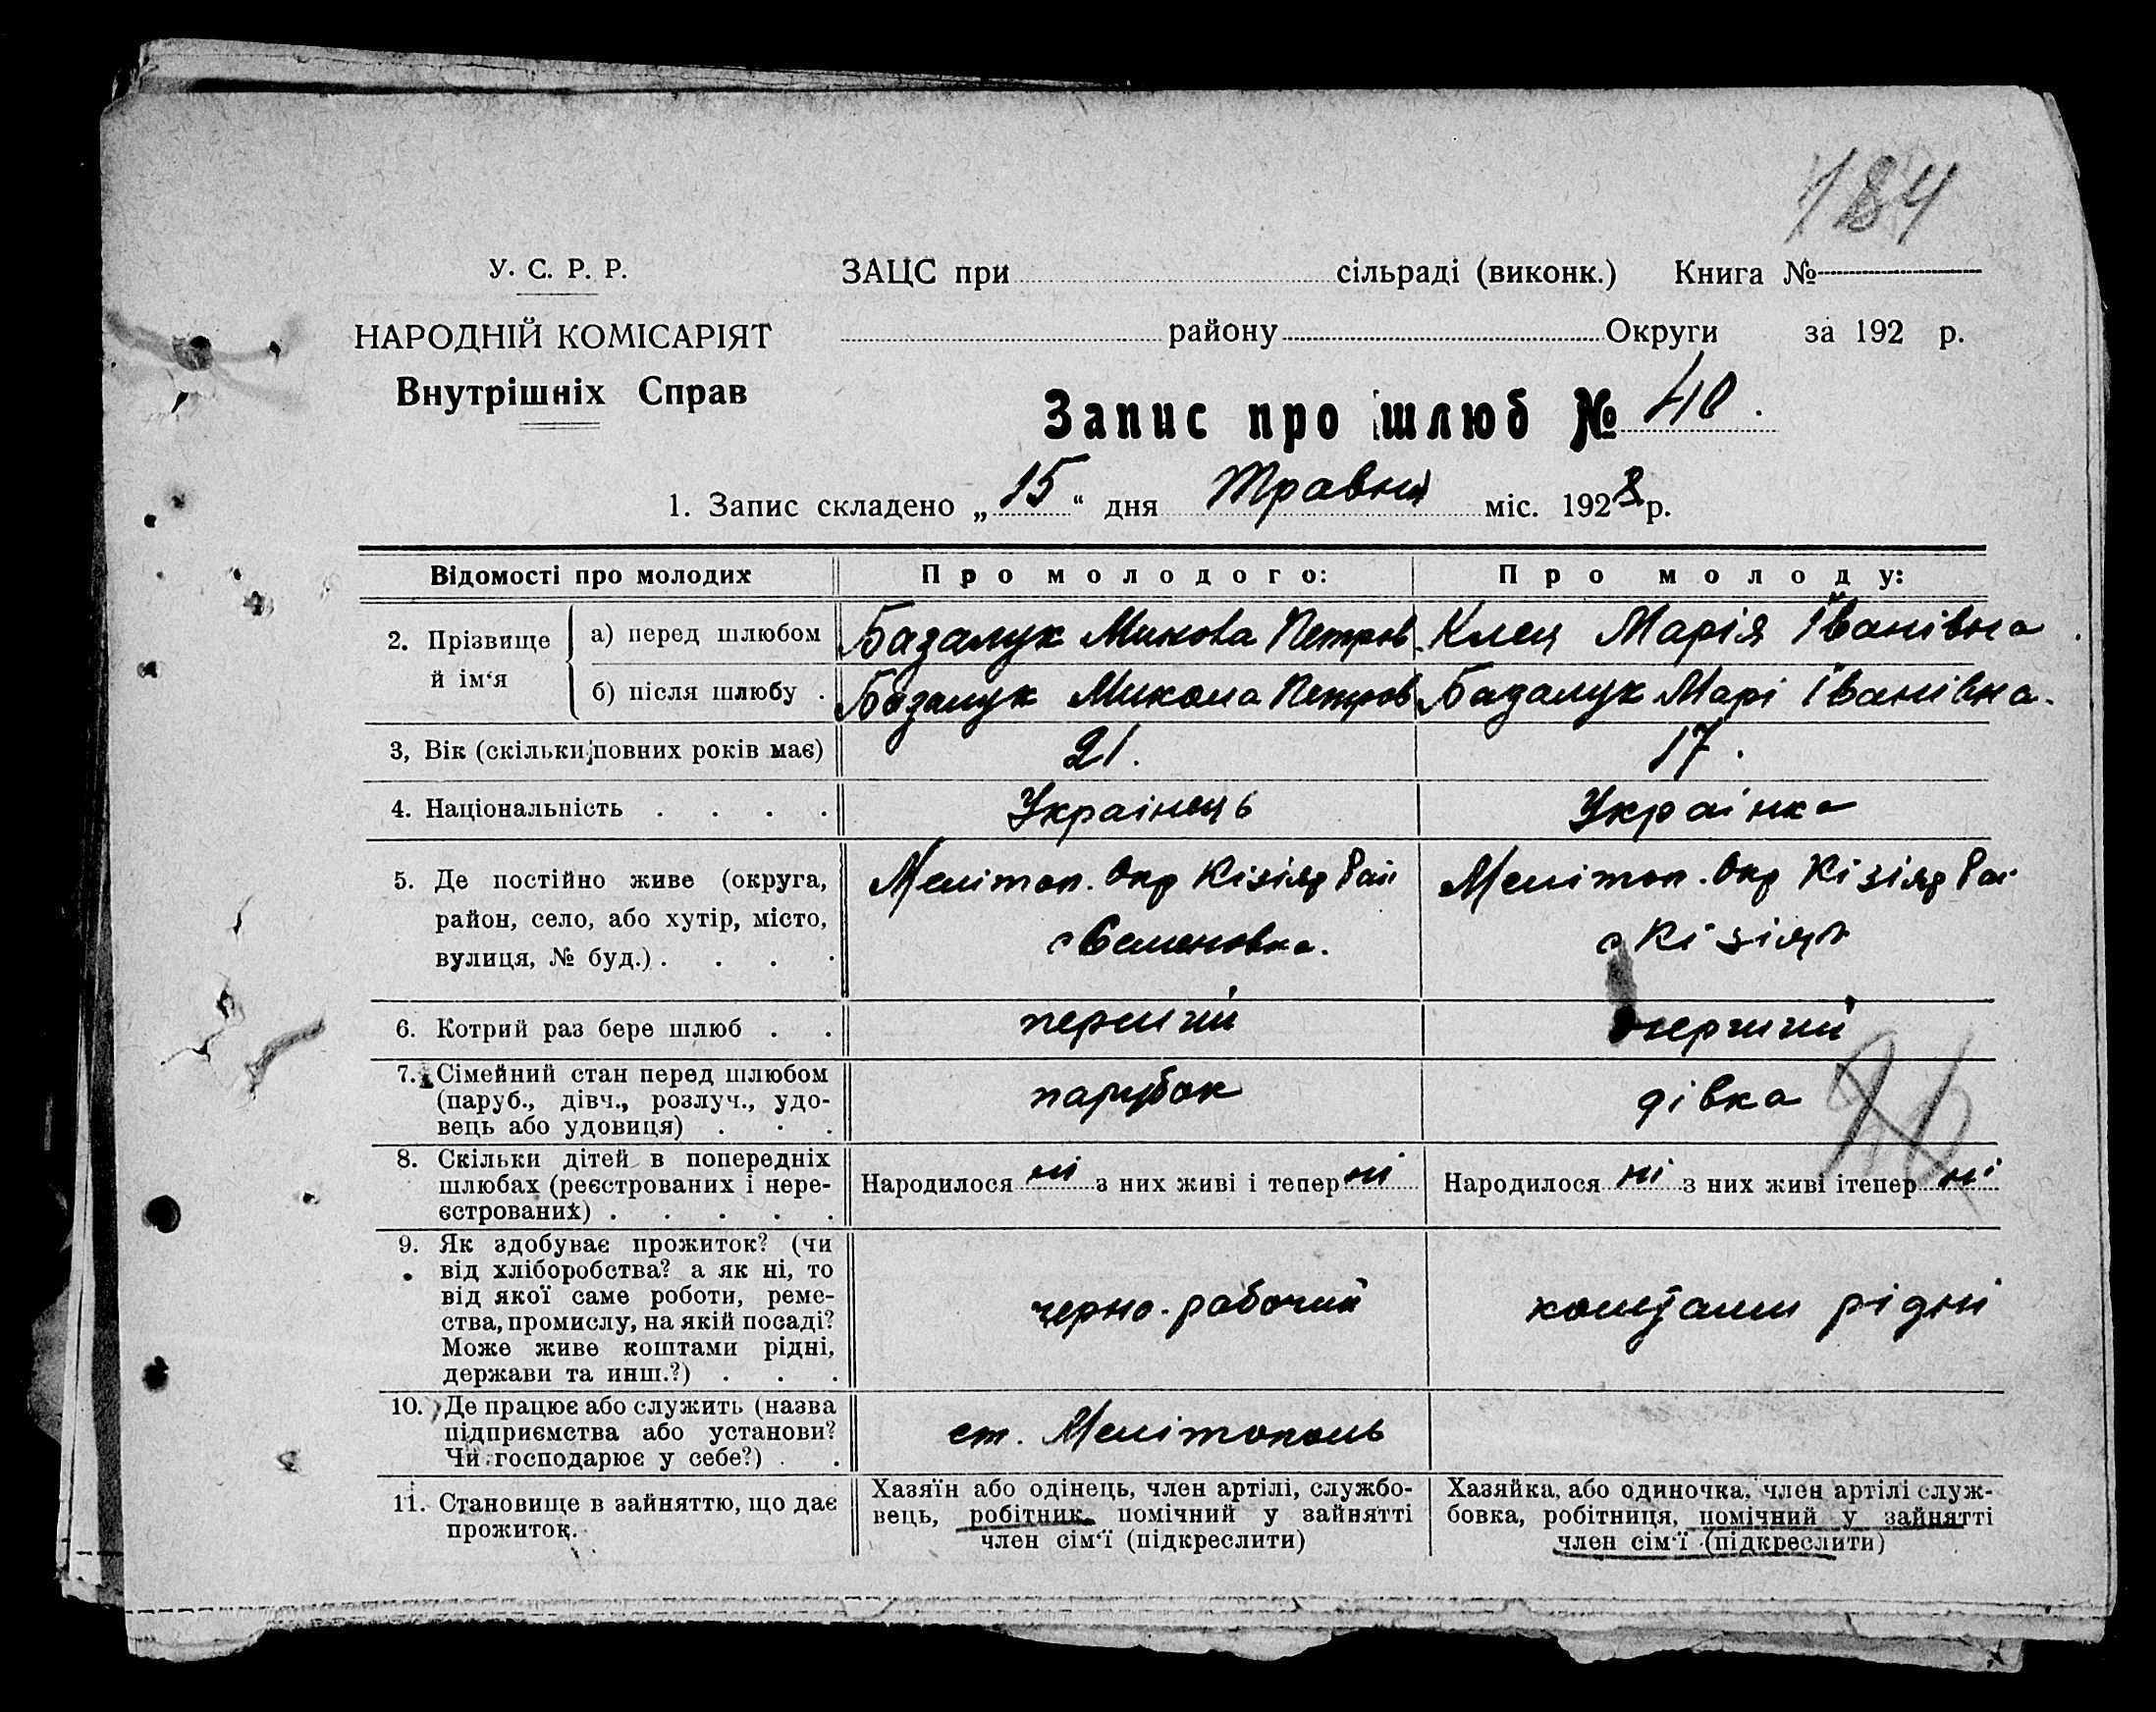 184
У. С. Р. Р.
НАРОДНІЙ КОМІСАРІЯТ
Внутрішніх Справ
ЗАЦС при сільраді (виконк.) Книга №
району Округи за 192 р.
Запис про шлюб № 40.
1. Запис складено „15“ дня Травня міс. 1928 р.
Відомості про молодих Про молодого: Про молоду:
2. Прізвище й ім‘я
а) перед шлюбом Базалук Микола Петров. Клец Марія Іванівна.
б) після шлюбу . Базалук Микола Петров Базалук Марі Іванівна.
3, Вік (скільки повних років має) 21. 17.
4. Національність . . . . Українець Українка
5. Де постійно живе (округа,
район, село, або хутір, місто,
вулиця, № буд.) . . . .
Мелітоп. Окр Кізіяр Рай
с Семеновка.
Мелітоп. Окр Кізіяр Рай
с Кізіяр
6. Котрий раз бере шлюб . . перший перший
7. Сімейний стан перед шлюбом
(паруб., дівч., розлуч., удо-
вець або удовиця) . . .
парубок дівка
8. Скільки дітей в попередніх
шлюбах (реєстрованих і нере-
єстрованих) . . . . .
Народилося ні з них живі і тепер ні
Народилося ні з них живі ітепер ні
9. Як здобуває прожиток? (чи
від хліборобства? а як ні, то
від якої саме роботи, реме-
ства, промислу, на якій посаді?
Може живе коштами рідні,
держави та инш.?) . . .
черно-рабочий коштами рідні
10. Де працює або служить (назва
підприємства або установи?
Чи господарює у себе?) . .
ст. Мелітополь
11. Становище в зайняттю, що дає
прожиток.
Хазяїн або одінець, член артілі, службо-
вець, робітник, помічний у зайнятті
член сім‘ї (підкреслити)
Хазяйка, або одиночка, член артілі служ-
бовка, робітниця, помічний у зайнятті
член сім‘ї (підкреслити)